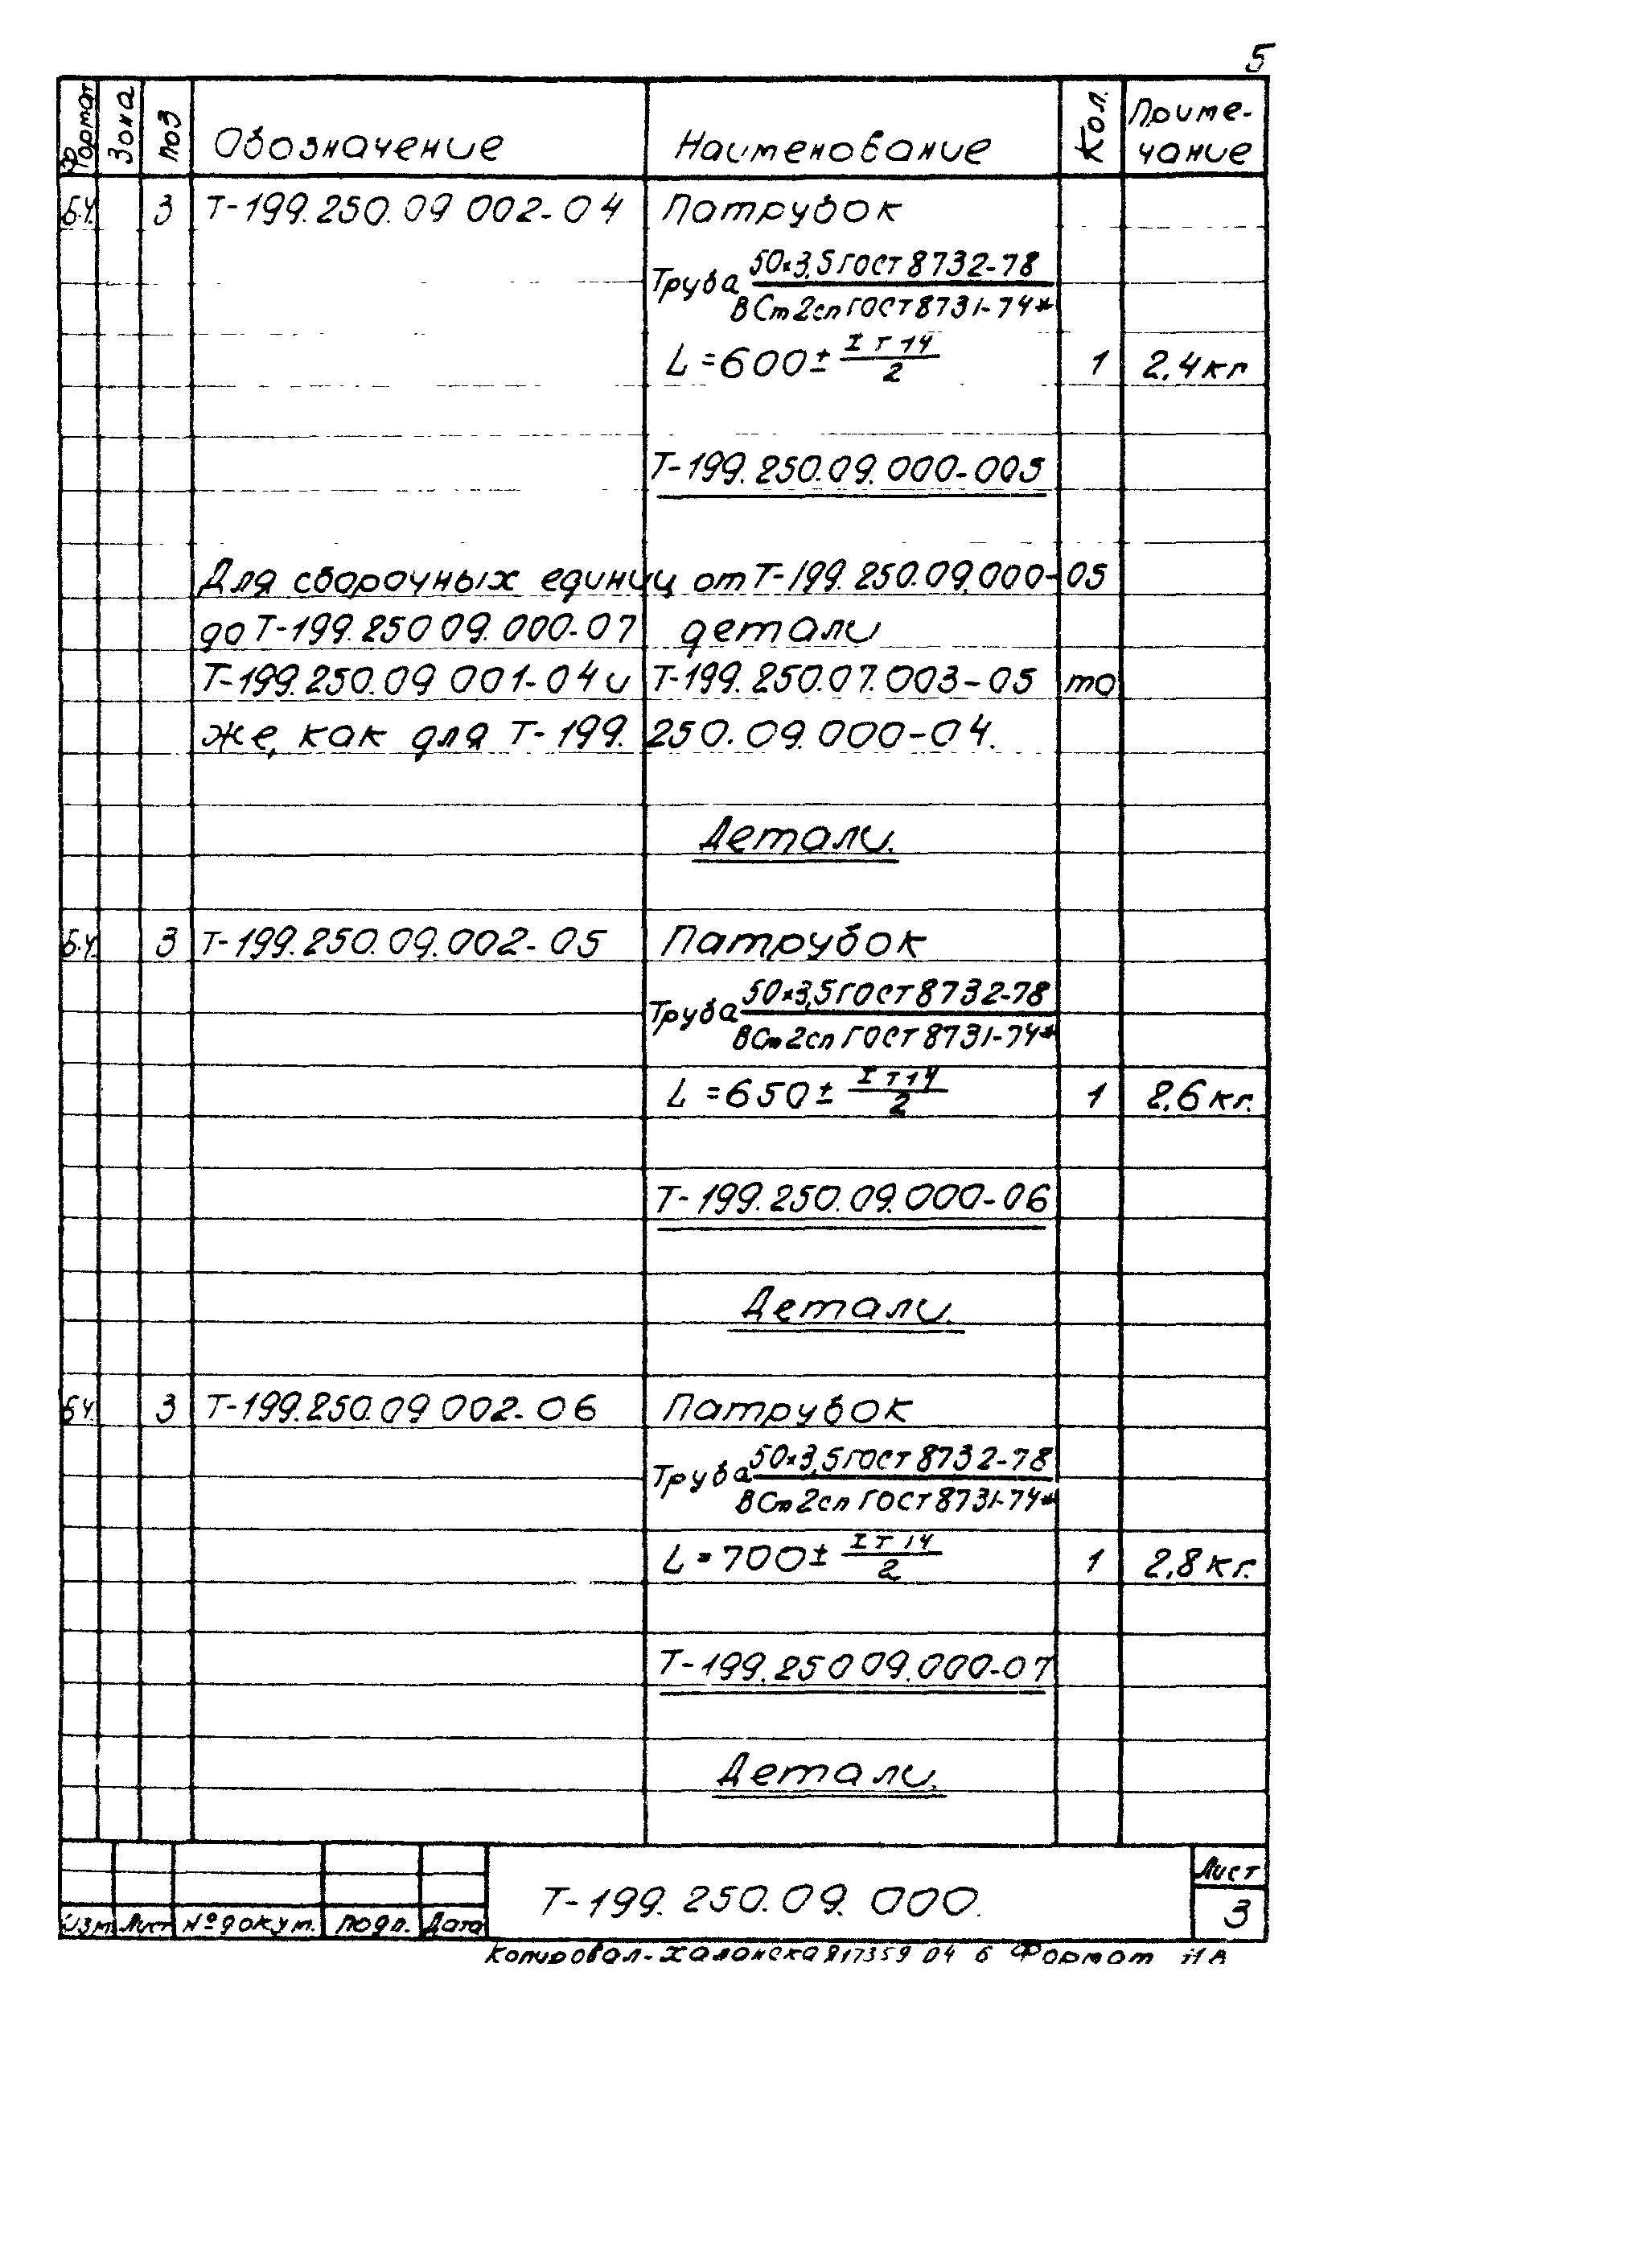 5
Формат Зона Поз Обозначение Наименование Кол. Приме-
чание
Б.Ч. 3 Т-199.250.09 002-04 Патрубок
Труба 50×3,5 ГОСТ 8732-78
ВСт2сп ГОСТ 8731-74*
L=600± IT14
2
1 2,4кг
Т-199.250.09.000-005
Для сборочных единиц от Т-199.250.09.000-05
до Т-199.250 09.000-07 детали
Т-199.250.09 001-04 и Т-199.250.07.003-05 то
же, как для Т-199.250.09.000-04.
Детали.
Б.Ч. 3 Т-199.250.09.002-05 Патрубок
Труба 50×3,5 ГОСТ 8732-78
ВСт2сп ГОСТ 8731-74*
L=650± IT14
2
1 2,6кг.
Т-199.250.09.000-06
Детали.
БЧ. 3 Т-199.250.09 002-06 Патрубок
Труба 50×3,5 ГОСТ 8732-78
ВСт2сп ГОСТ 8731-74*
L=700± IT14
2
1 2,8кг.
Т-199.250 09.000-07
Детали.
Изм Лист № докум. Подп. Дата
Т-199.250.09.000.
Лист
3
Копировал- 17359 04 6 Формат